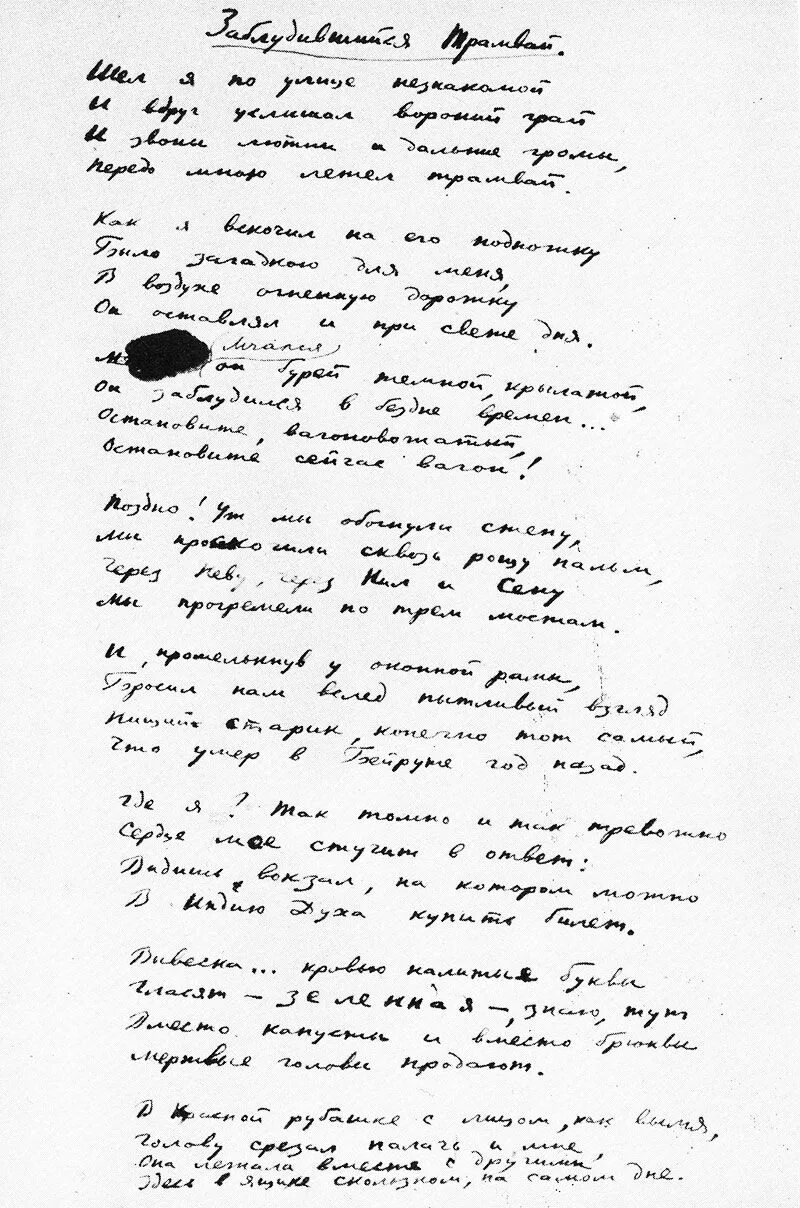 Заблудившийся трамвай.
Шел я по улице незнакомой
И вдруг услышал вороний грай
И звоны лютни и дальние громы,
Передо мною летел трамвай.
Как я вскочил на его подножку
Было загадкою для меня,
В воздухе огненную дорожку
Он оставлял и при свете дня.
Мчался
он бурей темной, крылатой,
Он заблудился в бездне времен...
Остановите, вагоновожатый,
Остановите сейчас вагон!
Поздно! Уж мы обогнули стену,
Мы проскочили сквозь рощу пальм,
Через Неву, через Нил и Сену
Мы прогремели по трем мостам.
И, промелькнув у оконной рамы,
Бросил нам вслед пытливый взгляд
Нищий старик, конечно тот самый,
Что умер в Бейруте год назад.
Где я? Так томно и так тревожно
Сердце мое стучит в ответ:
Видишь вокзал, на котором можно
В Индию Духа купить билет.
Вывеска... кровью налитые буквы
Гласят — зеленная —, знаю, тут
Вместо капусты и вместо брюквы
Мертвые головы продают.
В красной рубашке с лицом, как вымя,
Голову срезал палач и мне,
Она лежала вместе с другими
Здесь в ящике скользком, на самом дне.